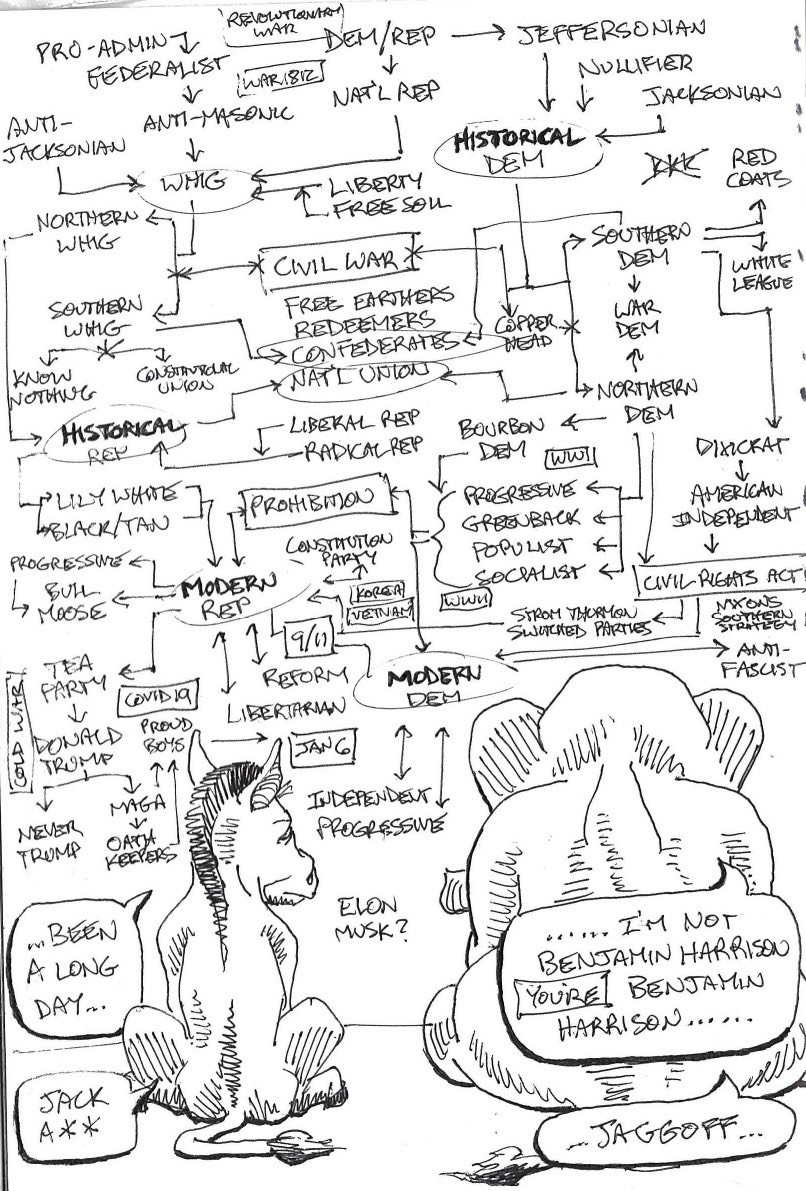 REVOLUTIONARY
WAR
PRO-ADMIN
FEDERALIST
DEM/REP
JEFFERSONIAN
WAR 1812
NAT'L REP
NULLIFIER
JACKSONIAN
ANTI-
JACKSONIAN
ANTI-MASONIC
HISTORICAL
DEM
KKK
RED
COATS
WHIG
LIBERTY
FREE SOIL
NORTHERN
WHIG
SOUTHERN
DEM
WHITE
LEAGUE
CIVIL WAR
SOUTHERN
WHIG
FREE EARTHERS
REDEEMERS
CONFEDERATES
COPPER
HEAD
WAR
DEM
KNOW
NOTHING
CONSTITUTIONAL
UNION
NAT'L UNION
NORTHERN
DEM
HISTORICAL
REP
LIBERAL REP
RADICAL REP
BOURBON
DEM
WW1
DIXICRAT
LILY WHITE
BLACK/TAN
PROHIBITION
PROGRESSIVE
GREENBACK
POPULIST
SOCIALIST
AMERICAN
INDEPENDENT
PROGRESSIVE
BULL
MOOSE
MODERN
REP
CONSTITUTION
PARTY
KOREA
VIETNAM
WW11
CIVIL RIGHTS ACT
STROM THORMON
SWITCHED PARTIES
NIXONS
SOUTHERN
STRATEGY
9/11
TEA
PARTY
REFORM
LIBERTARIAN
MODERN
DEM
ANTI-
FASCIST
COLD WAR
COVID 19
DONALD
TRUMP
PROUD
BOYS
JAN 6
NEVER
TRUMP
MAGA
OATH
KEEPERS
INDEPENDENT
PROGRESSIVE
ELON
MUSK?
...BEEN
A LONG
DAY...
...... I'M NOT
BENJAMIN HARRISON
YOU'RE BENJAMIN
HARRISON......
JACK
A**
...JAGGOFF...